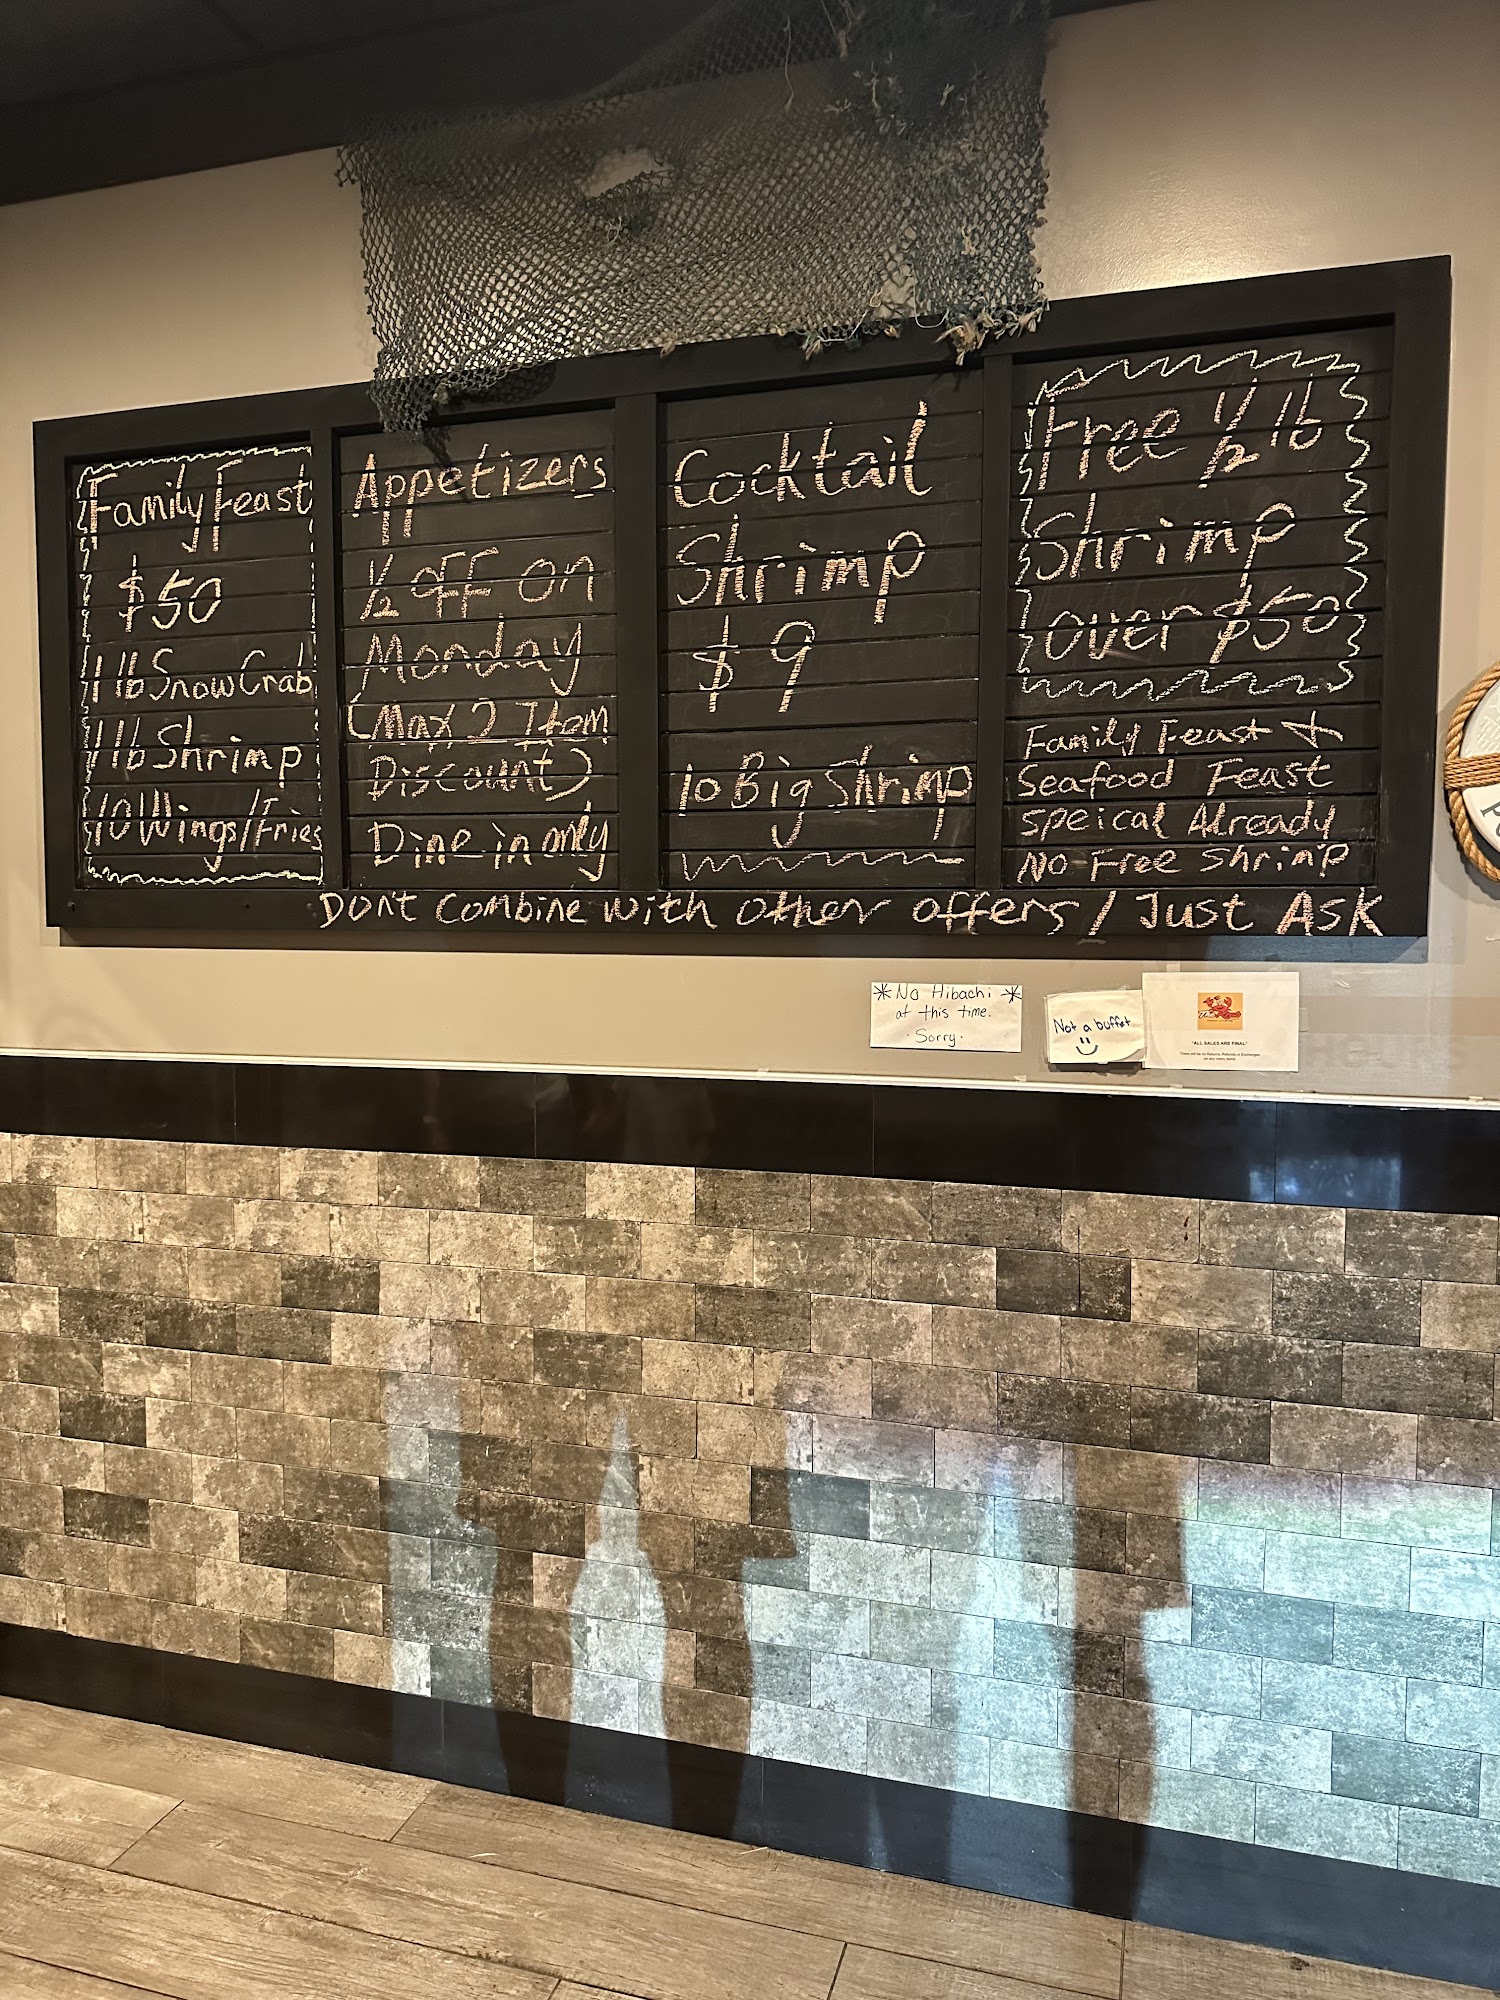 Family Feast
$50
1 lb Snow Crab
1 lb Shrimp
10 Wings/Fries
Appetizers
½ OFF On
Monday
(Max 2 Item
Discount)
Dine-in only
Cocktail
Shrimp
$9
10 Big Shrimp
Free ½ lb
Shrimp
over $50
Family Feast +
Seafood Feast
speical Already
No Free Shrimp
Don't Combine with other offers / Just Ask
*No Hibachi*
at this time.
·Sorry·
Not a buffet
"ALL SALES ARE FINAL"
There will be no Returns, Refunds or Exchanges
on any menu items